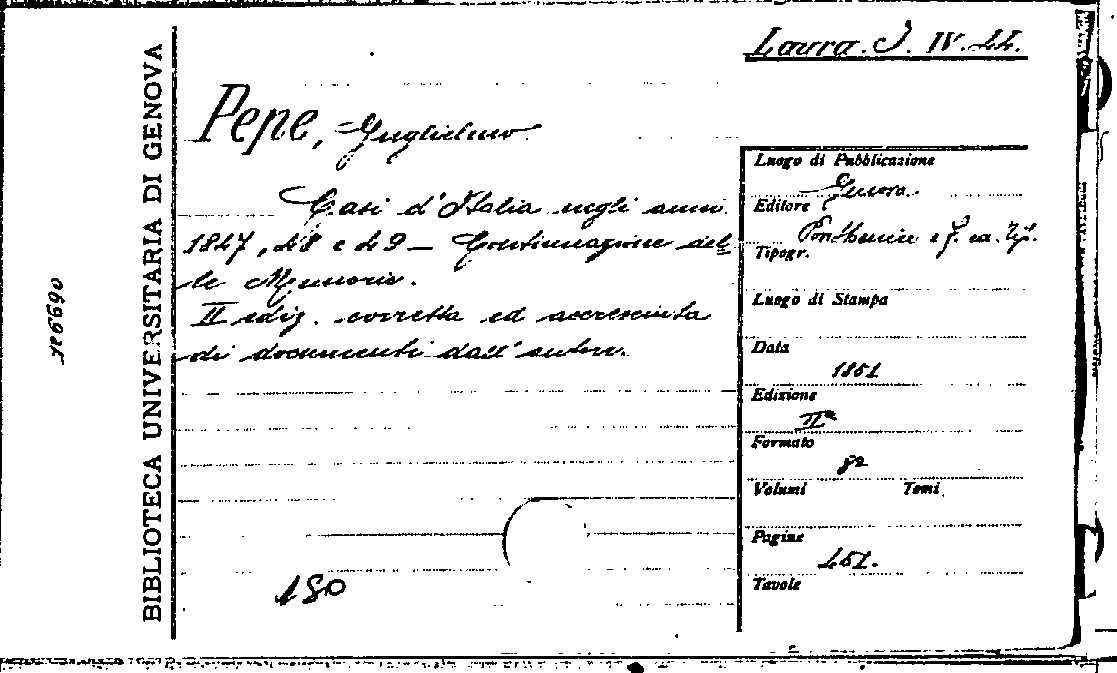 Laura. J. IV. 44.
BIBLIOTECA UNIVERSITARIA DI GENOVA
Pepe, Guglielmo
Casi d'Italia negli anni
1847, 48 e 49 — Continuazione del
le Memorie.
II ediz. corretta ed accresciuta
di documenti dall'autore.
180
Luogo di Pubblicazione
Genova.
Editore
Ponthenier e f. ed. Tip.
Tipogr.
Luogo di Stampa
Data
1851
Edizione
IIª
Formato
8º
Volumi Tomi
Pagine
451.
Tavole